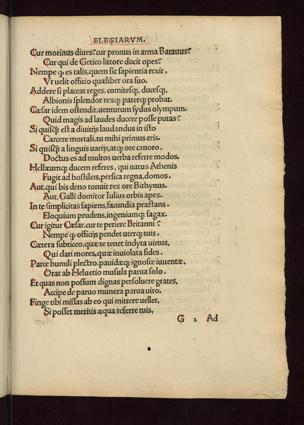 ELEGIARVM.
Cur morinus diues? cur pronus in arma Batauus?
Cur qui de Getico littore ducit opes?
Nempe q̨ es talis, quem sic sapientia rexit,
Vt uelit officio quælibet ora suo.
Addere si placeat reges, comitesq̨, ducesq̨,
Albionis splendor rexq̨ paterq̨ probat.
Cæsar idem ostendit, uenturum sydus olympum.
Quid magis ad laudes ducere posse putas?
Si quisq̨ est a diuitijs laudandus in isto
Carcere mortali, tu mihi primus eris.
Si quisq̨ a linguis uarijs, atq̨ ore canoro,
Doctus es ad multos uerba referre modos.
ducem referes, qui natus Athenis
Fugit ad hostiles, persica regna, domos.
Aut, qui bis deno tonuit rex ore Bithynus.
Aut, Galli domitor Iulius orbis apex.
In te simplicitas sapiens, facundia præstans,
Eloquium prudens, ingeniumq̨ sagax.
Cur igitur Cæsar, cur te petiere Britanni?
Nempe q̨ officijs pendet uterq̨ tuis.
Cætera subticeo, quæ te tenet indyta uirtus,
Qui dari mores, quæ inuiolata fides.
Parce humili plectro, pauidæq̨ ignosce iuuentæ,
Orat ab Heluetio musula parua solo.
Et quas non possum dignas persoluere grates,
Accipe de paruo munera parua uiro.
Finge tibi missas ab eo qui mittere uellet,
Si posset meritis æqua referre tuis,
G 2 Ad